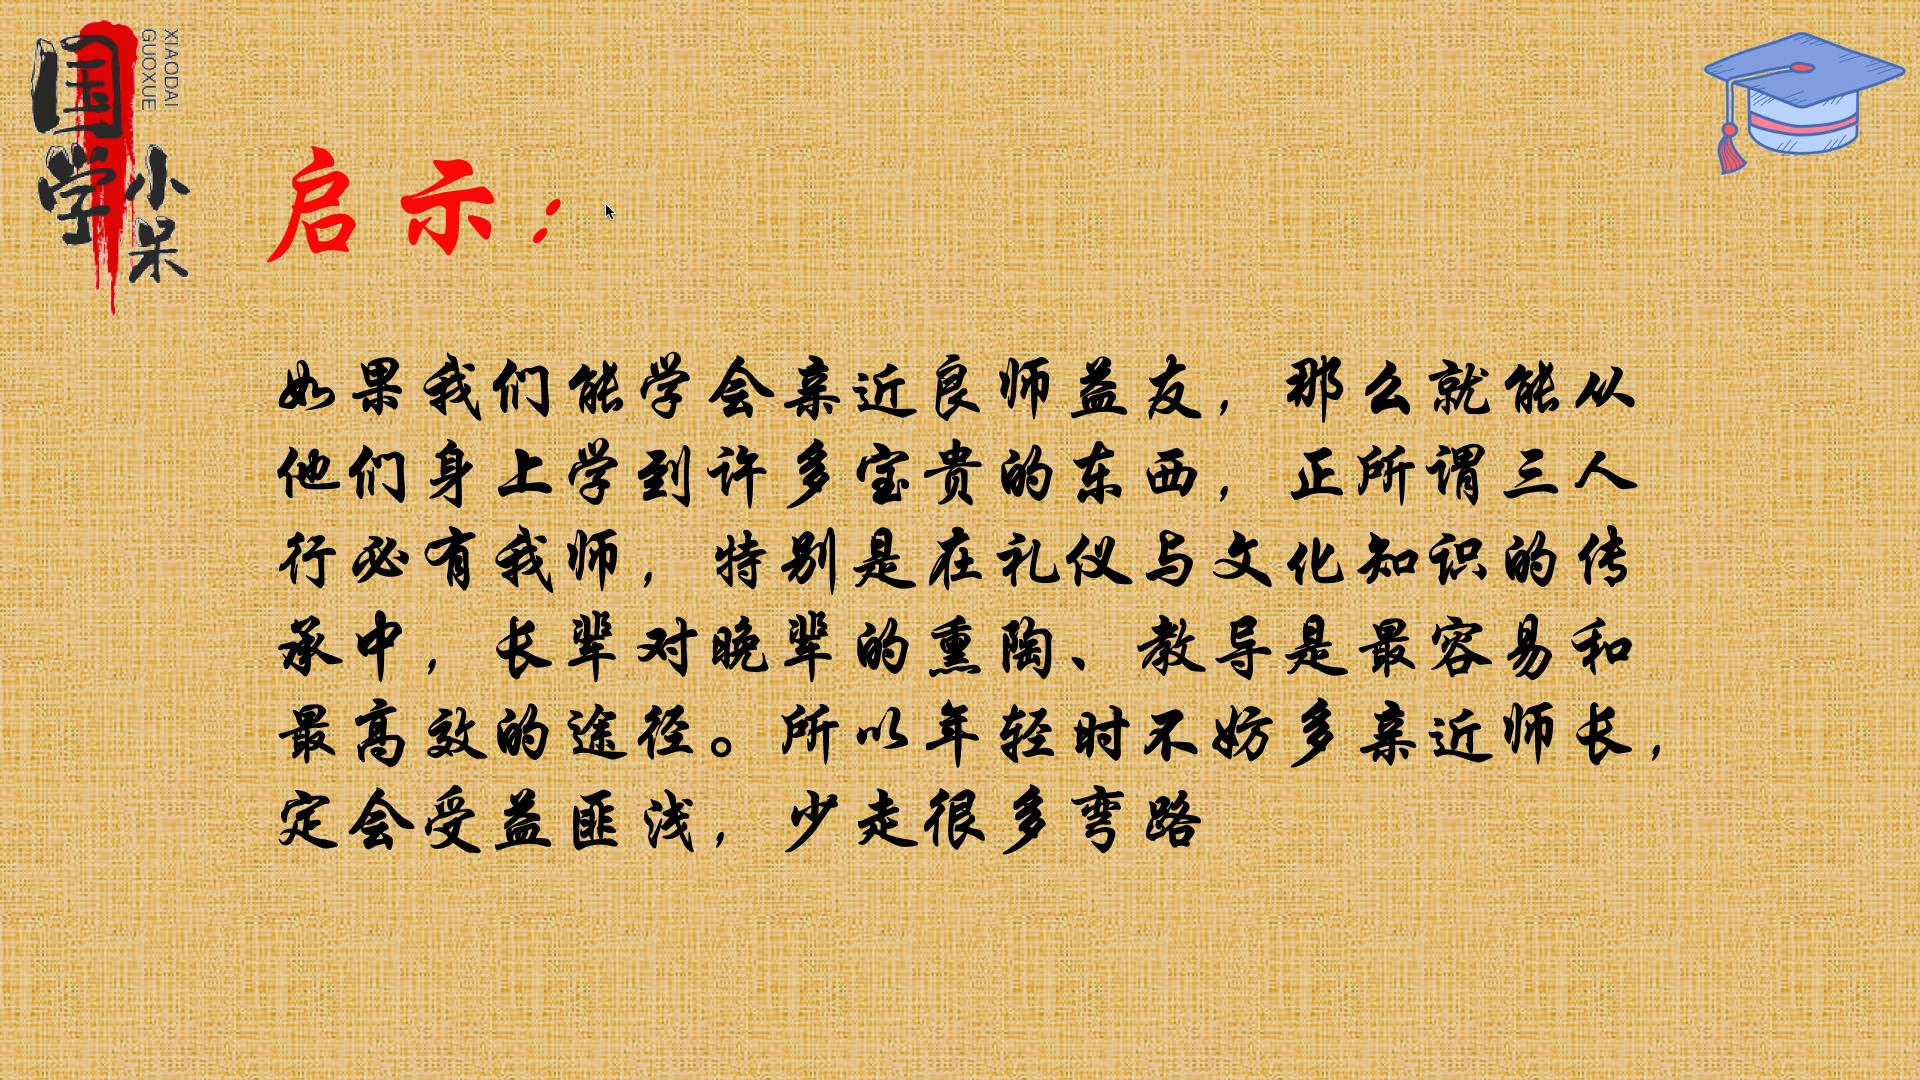 国学
小呆
XIAODAI
GUOXUE
启示：
如果我们能学会亲近良师益友，那么就能从
他们身上学到许多宝贵的东西，正所谓三人
行必有我师，特别是在礼仪与文化知识的传
承中，长辈对晚辈的熏陶、教导是最容易和
最高效的途径。所以年轻时不妨多亲近师长，
定会受益匪浅，少走很多弯路